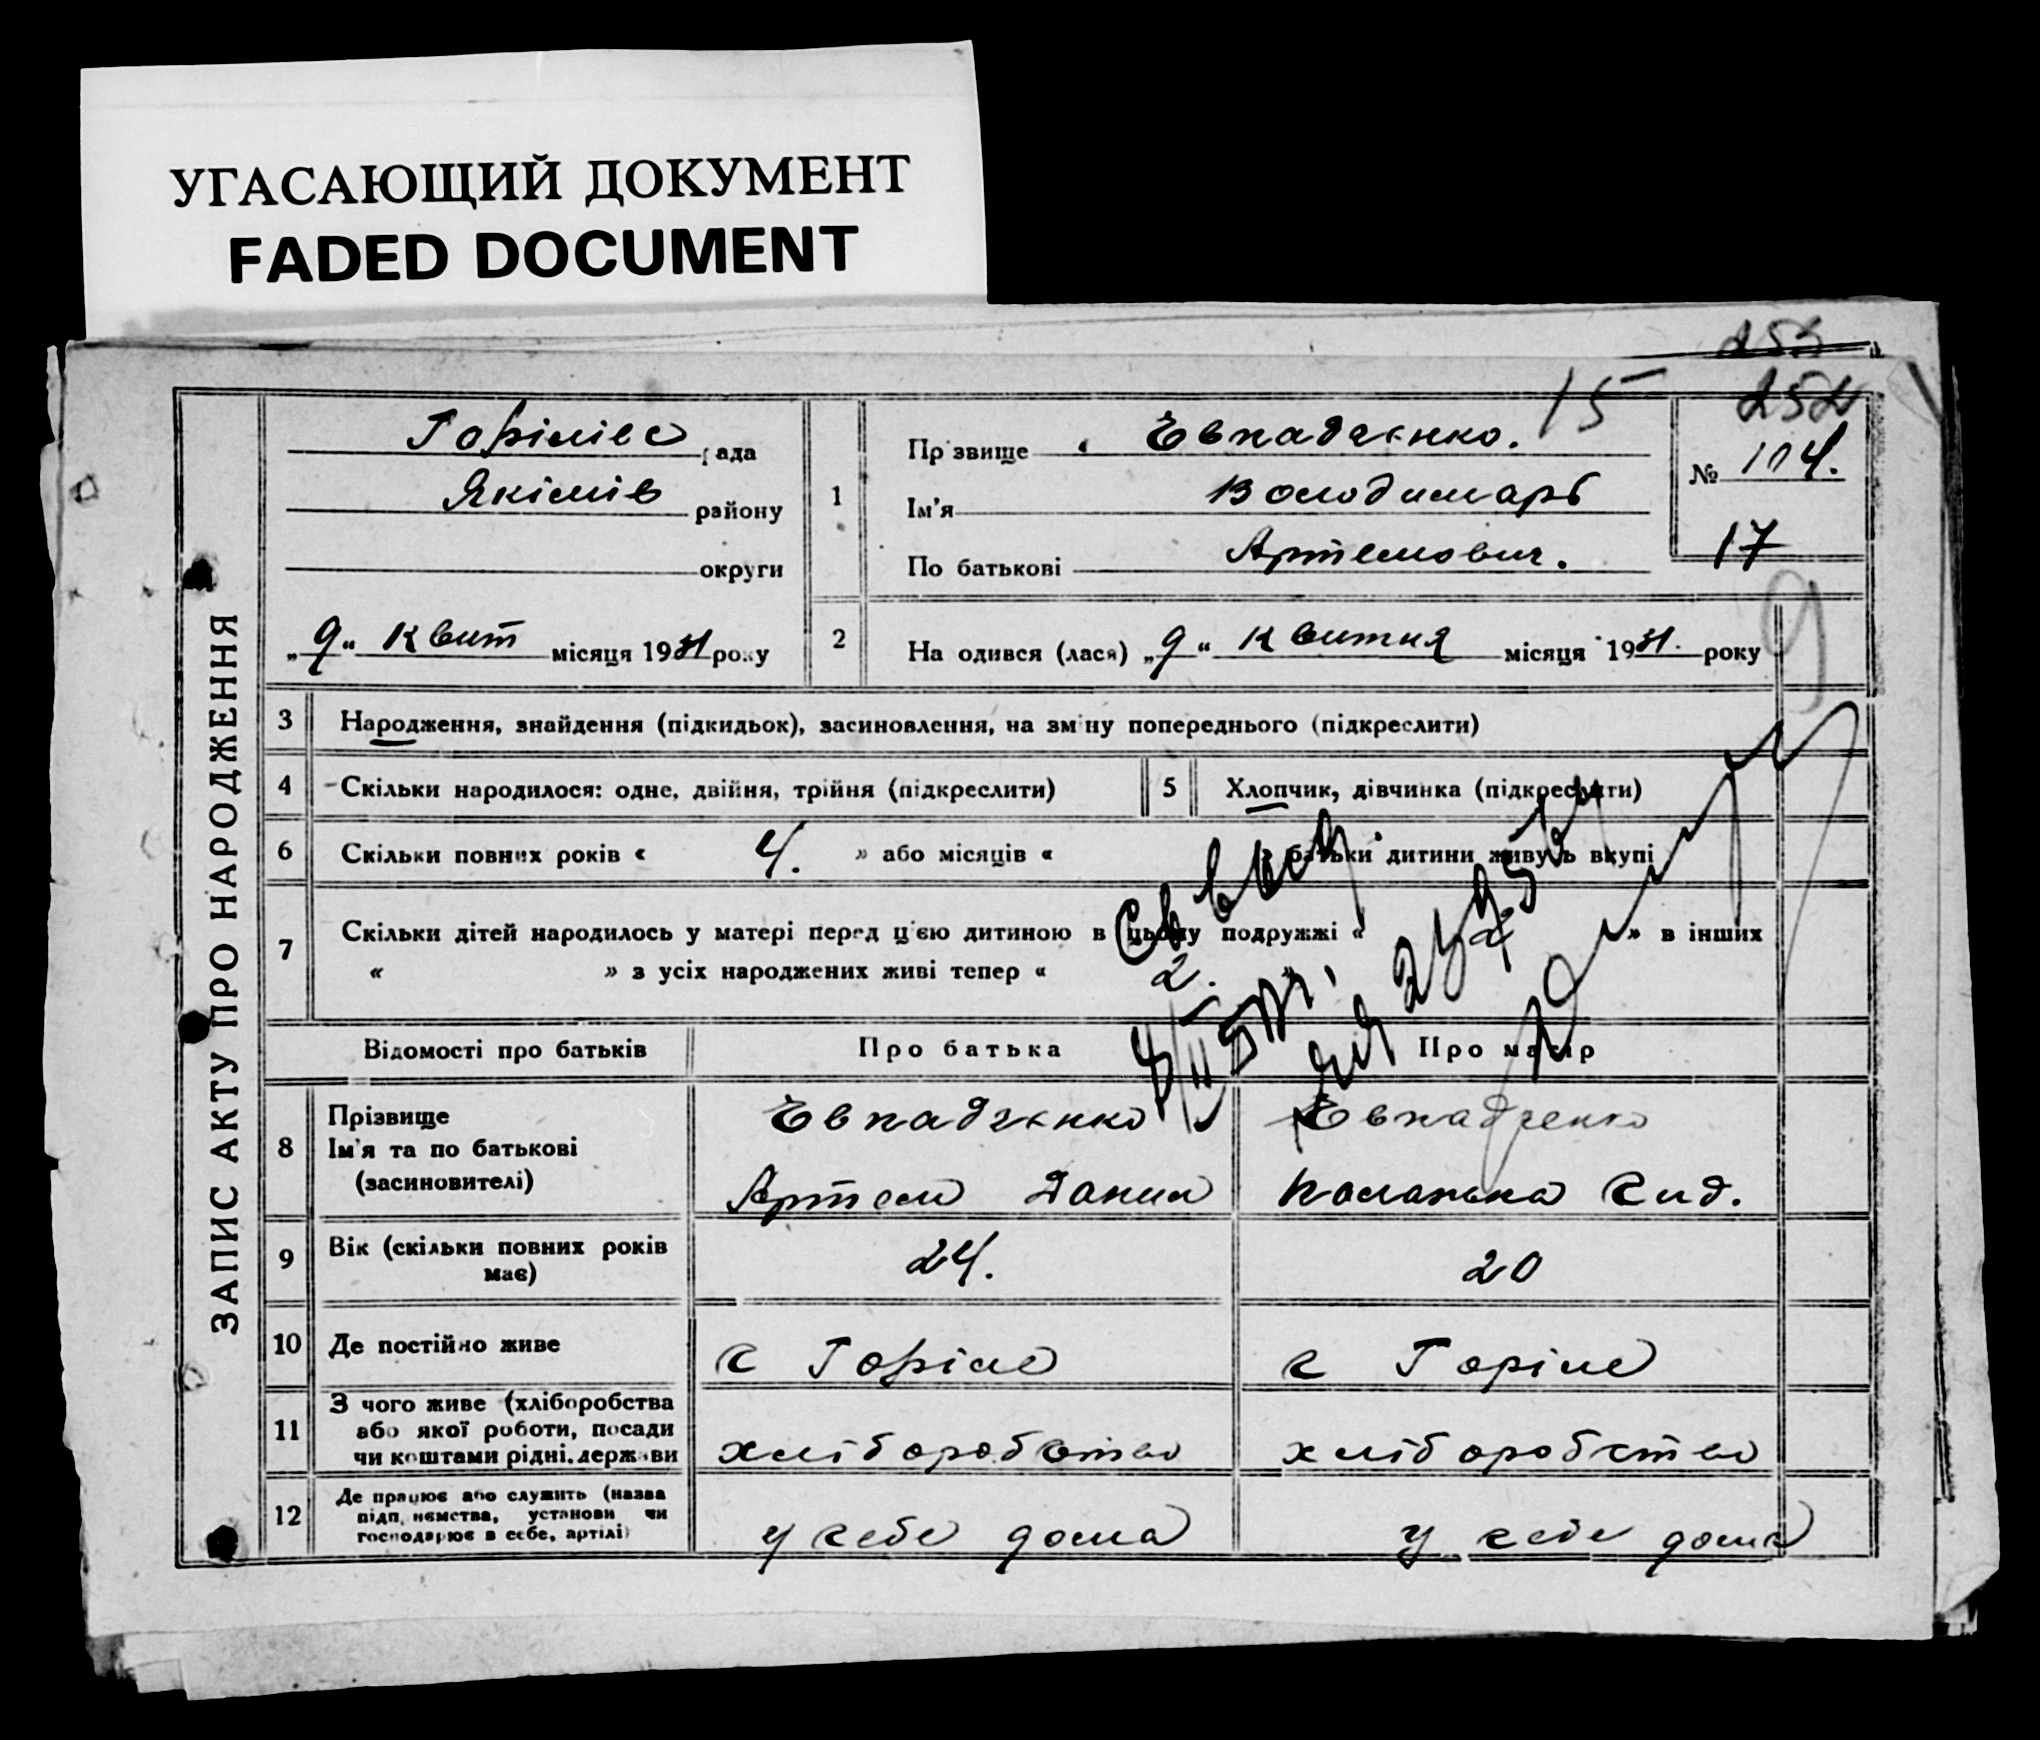 УГАСАЮЩИЙ ДОКУМЕНТ
FADED DOCUMENT
252
15
ЗАПИС АКТУ ПРО НАРОДЖЕННЯ
Горілівс рада
Якімів району
округи
„9“ Квит місяця 1931 року
1
Пр звище Евпадченко.
Ім'я Володимарь
По батькові Артемович.
№ 104.
17
9
2
На одився (лася) „9“ Квитня місяця 1931. року
3 Народження, знайдення (підкидьок), засиновлення, на зміну попереднього (підкреслити)
4 Скільки народилося: одне, двійня, трійня (підкреслити)
5 Хлопчик, дівчинка (підкреслити)
6 Скільки повних років « 4. » або місяців « » батьки дитини живуть вкупі
7 Скільки дітей народилось у матері перед цією дитиною в цьому подружжі « 2 » в інших
« » з усіх народжених живі тепер « 2. »
Відомості про батьків Про батька Про матір
8 Прізвище
Ім'я та по батькові
(засиновителі)
Евпадченко
Артем Данил
Евпадченко
Сид.
9 Вік (скільки повних років
має)
24.
20
10 Де постійно живе
с Горіле
с Горіле
11 З чого живе (хліборобства
або якої роботи, посади
чи коштами рідні, держави
хліборобство
хліборобство
12 Де працює або служить (назва
підприємства, установи чи
господарює в себе, артілі)
у себе дома
у себе дома